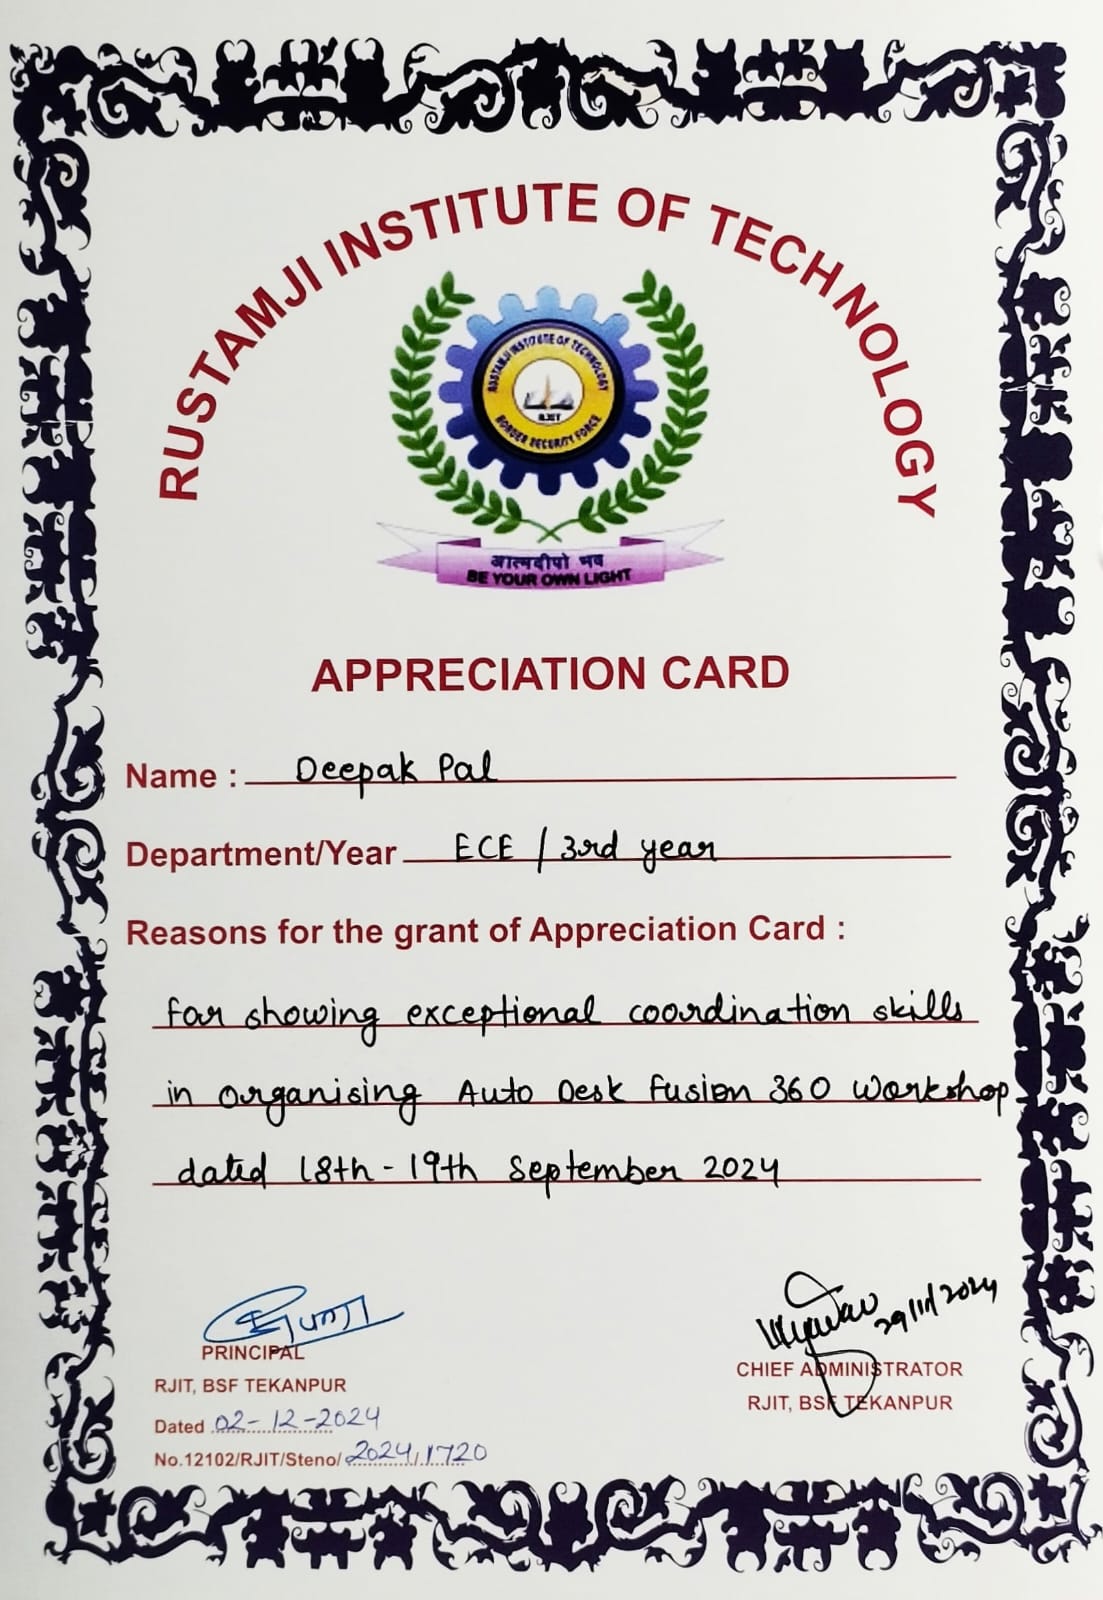 RUSTAMJI INSTITUTE OF TECHNOLOGY
RUSTAMJI INSTITUTE OF TECHNOLOGY
RJIT
BORDER SECURITY FORCE
आत्मदीपो भव
BE YOUR OWN LIGHT
APPRECIATION CARD
Name : Deepak Pal
Department/Year ECE / 3rd year
Reasons for the grant of Appreciation Card :
for showing exceptional coordination skills
in organising Auto Desk Fusion 360 Workshop
dated 18th - 19th September 2024
29/11/2024
PRINCIPAL
RJIT, BSF TEKANPUR
Dated 02-12-2024
No.12102/RJIT/Steno/2024/1720
CHIEF ADMINISTRATOR
RJIT, BSF TEKANPUR